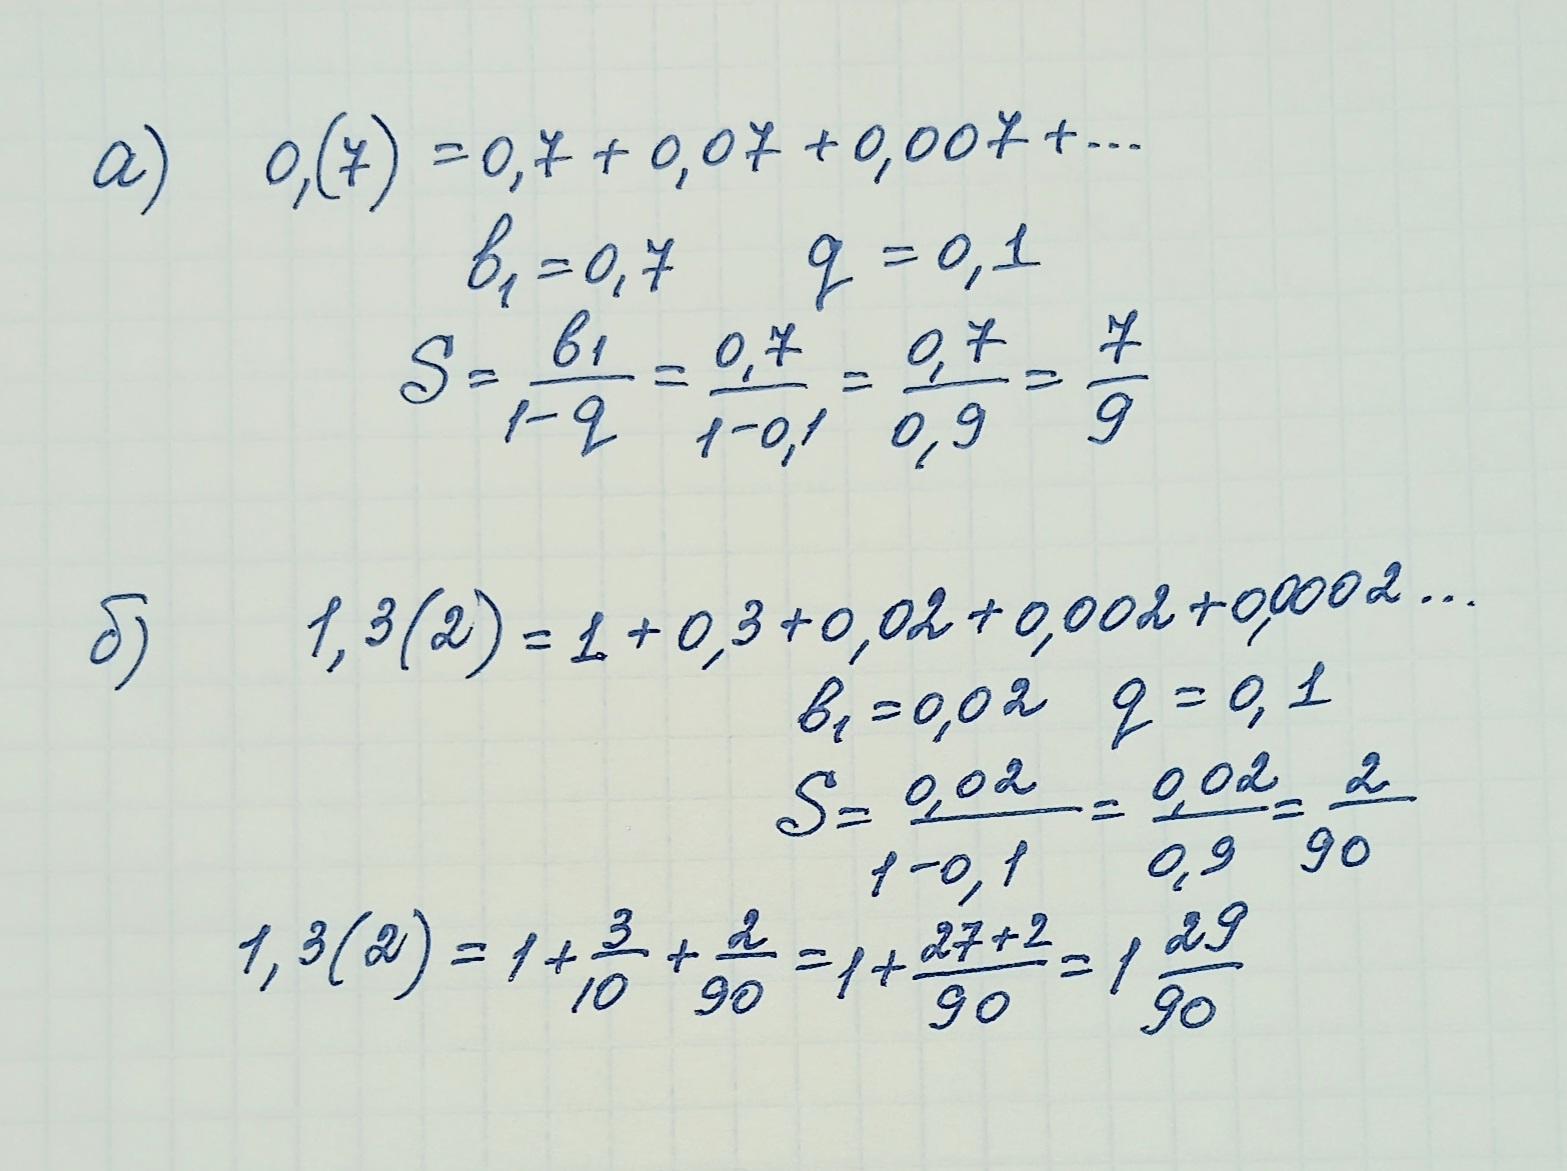 а) 0,(7) = 0,7 + 0,07 + 0,007 + ...
в₁ = 0,7 q = 0,1
S = в₁/(1-q) = 0,7/(1-0,1) = 0,7/0,9 = 7/9
б) 1,3(2) = 1 + 0,3 + 0,02 + 0,002 + 0,0002 ...
в₁ = 0,02 q = 0,1
S = 0,02/(1-0,1) = 0,02/0,9 = 2/90
1,3(2) = 1 + 3/10 + 2/90 = 1 + (27+2)/90 = 1 29/90